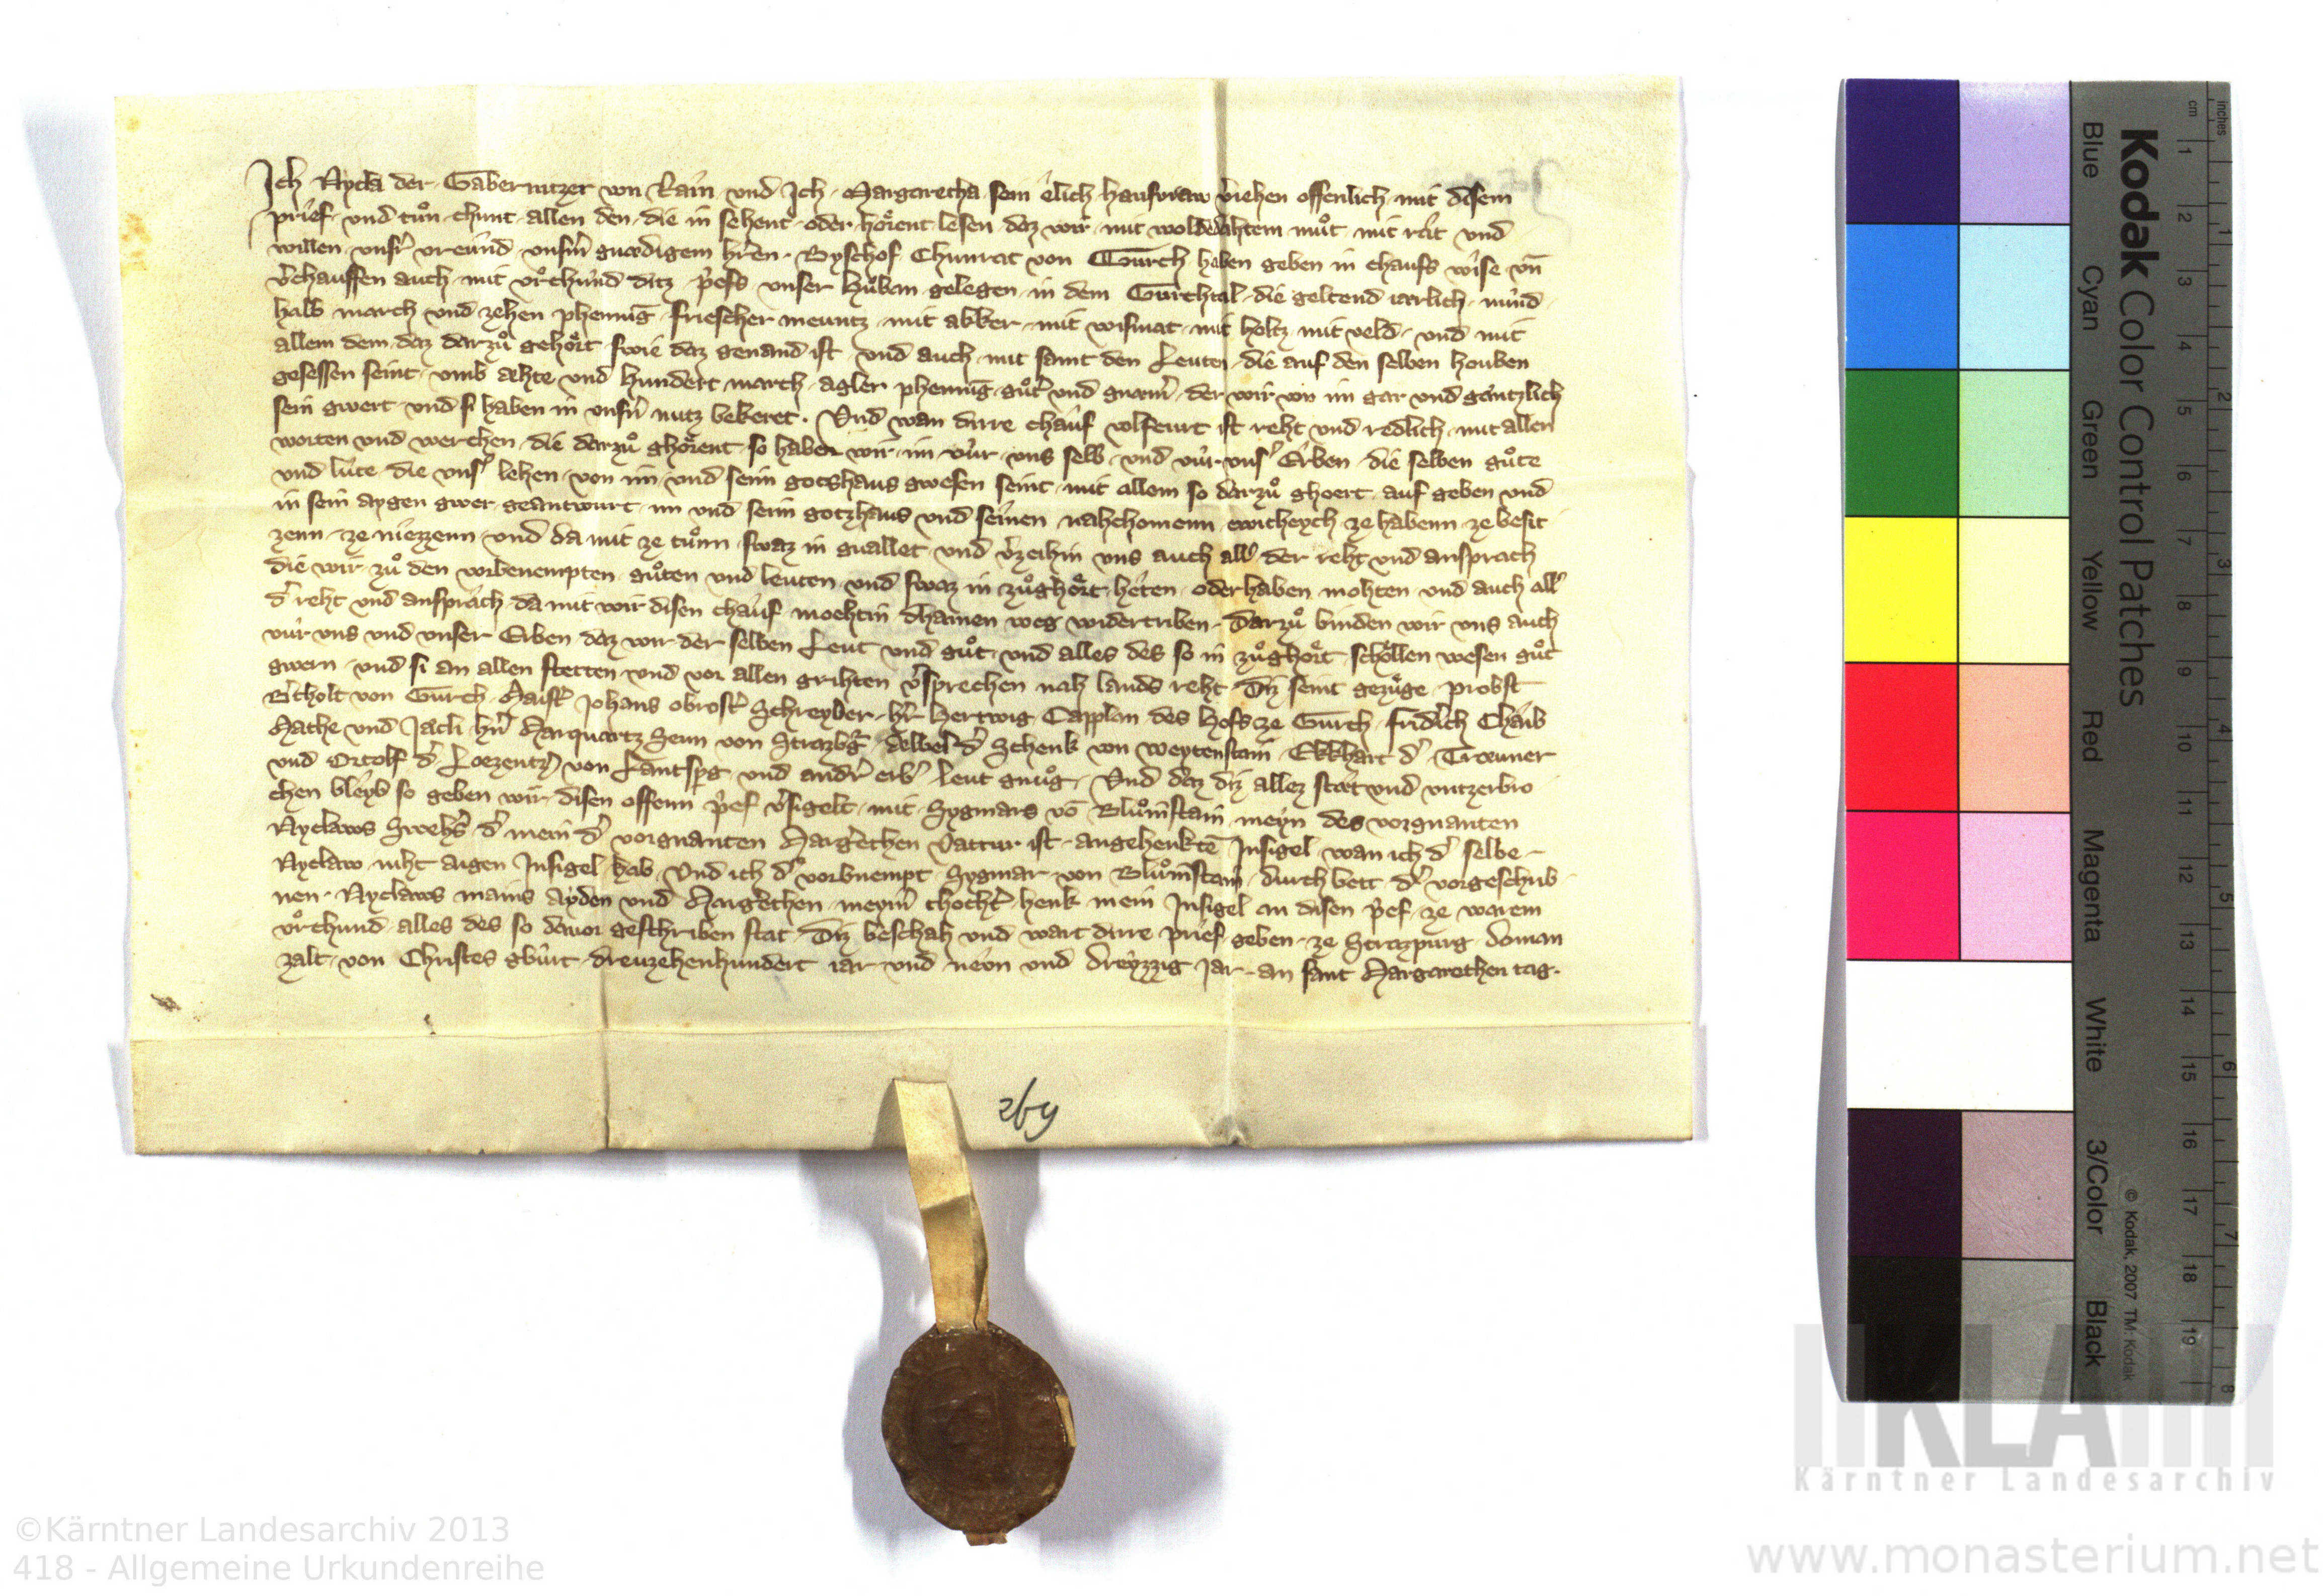 Ich Nycla der Gabernitzer von Rain und Ich Margaretha sein elich hausvraw v̓iehen offenlich mit disem
prief und tůn chunt allen den die in sehent oder hoͤrent lesen daz wir mit woldedahtem můt mit rat und
willen unsr̓ vreund unsm̓ gnædigem hr̓en Byschof Chunrat von Gurch haben geben in chaufs wise vn̄
v̓chauffen auch mit vrchund ditz p̓efs unser Hůban gelegen in dem Gurchtal die geltend iærlich
halb march und zehen phennīg friescher meuntz mit akker mit wismat mit holtz mit veld und mit
allem dem daz darzů gehoͤrt swie daz genand ist und auch mit samt den Leuten die auf den selben houben
gesessen seint umb æhte und hundert march agler phennīg gůt̓ und gnæm̓ der wir von im gar und gæntzlich
sein gwert und si haben in unsn̓ nutz bekeret. Und wan dirre chauf volfeurt ist reht und redlich mit allen
worten und werchen die darzů ghoͤrent so haben wir im vur uns selb und vur uns̓ Erben die selben gůte
und lute die uns̓ lehen von im und seim gotshaus gwesen seint mit allem so darzů ghoert auf geben und
in sein aygen gwer geantwurt im und seim gotzhaus und seinen nahchomenn ewicheych ze habenn ze besit
zenn ze niezzenn und da mit ze tůnn swaz in gvallet und v̓zeihin uns auch all̓ der reht und ansprach
die wir zů den vorbenempten gůten und leuten und swaz in zůghoͤrt heten oder haben mohten und auch all̓
d̓ reht und ansprach da mit wir disen chauf moehtin dhainen weg widertriben. Darzů binden wir uns auch
vur uns und unser Erben daz wir der selben Leut und gůt und alles des so in zůghoͤrt schollen wesen gůt
gwern und si an allen stetten und vor allen grihten v̓sprechen nah lands reht Diz seint gezuge probst
B̓tholt von Gurch Maist̓ Johans obrost̓ Schreyber hr̓ Hertwig Capplan des Hofs ze Gurch fridr̓ich Chaib
Mathe und Jacli hn̓ Marquartz Seun von Strazbg̓ d̓ Schenk von Weytenstain Ekkhart d̓ Træuner
und Ortolf d̓ von Lantspg̓ und andr̓ erb̓ leut gnůg. Und daz diz allez stæt und untzerbro
chen bleyb so geben wir disen offenn p̓ef v̓sigelt mit Sygmars vō Blůmstain meyn des vorgnanten
Nyclaws Swehs̓ d̓ mein d̓ vorgnanten Marg̓ethen Vatter ist angehenktē Insigel wan ich d̓ selbe
Nyclaw niht aigen Insigel hab Und ich d̓ vorbnempt Sygmar von Blůmstain durch bett d̓ vorgeschrib
nen Nyclaws mains Ayden und Marg̓ethen meyn̓ thocht̓ henk mein Insigel an disen p̓ef ze warem
vrchund alles des so davor geschriben stat Diz beschah und wart dirre prief geben ze Strazpurg do man
zalt von Christes gburt dreuzehenhundert iar und neun und dreyzzig Jar an sant Margarethen tag.
Kodak Color Control Patches
Blue Cyan Green Yellow Red Magenta White 3/Color Black
© Kodak, 2007 TM: Kodak
cm 1 2 3 4 5 6 7 8 9 10 11 12 13 14 15 16 17 18 19
inches 1 2 3 4 5 6 7 8
KLA
Kärntner Landesarchiv
©Kärntner Landesarchiv 2013
418 - Allgemeine Urkundenreihe
www.monasterium.net